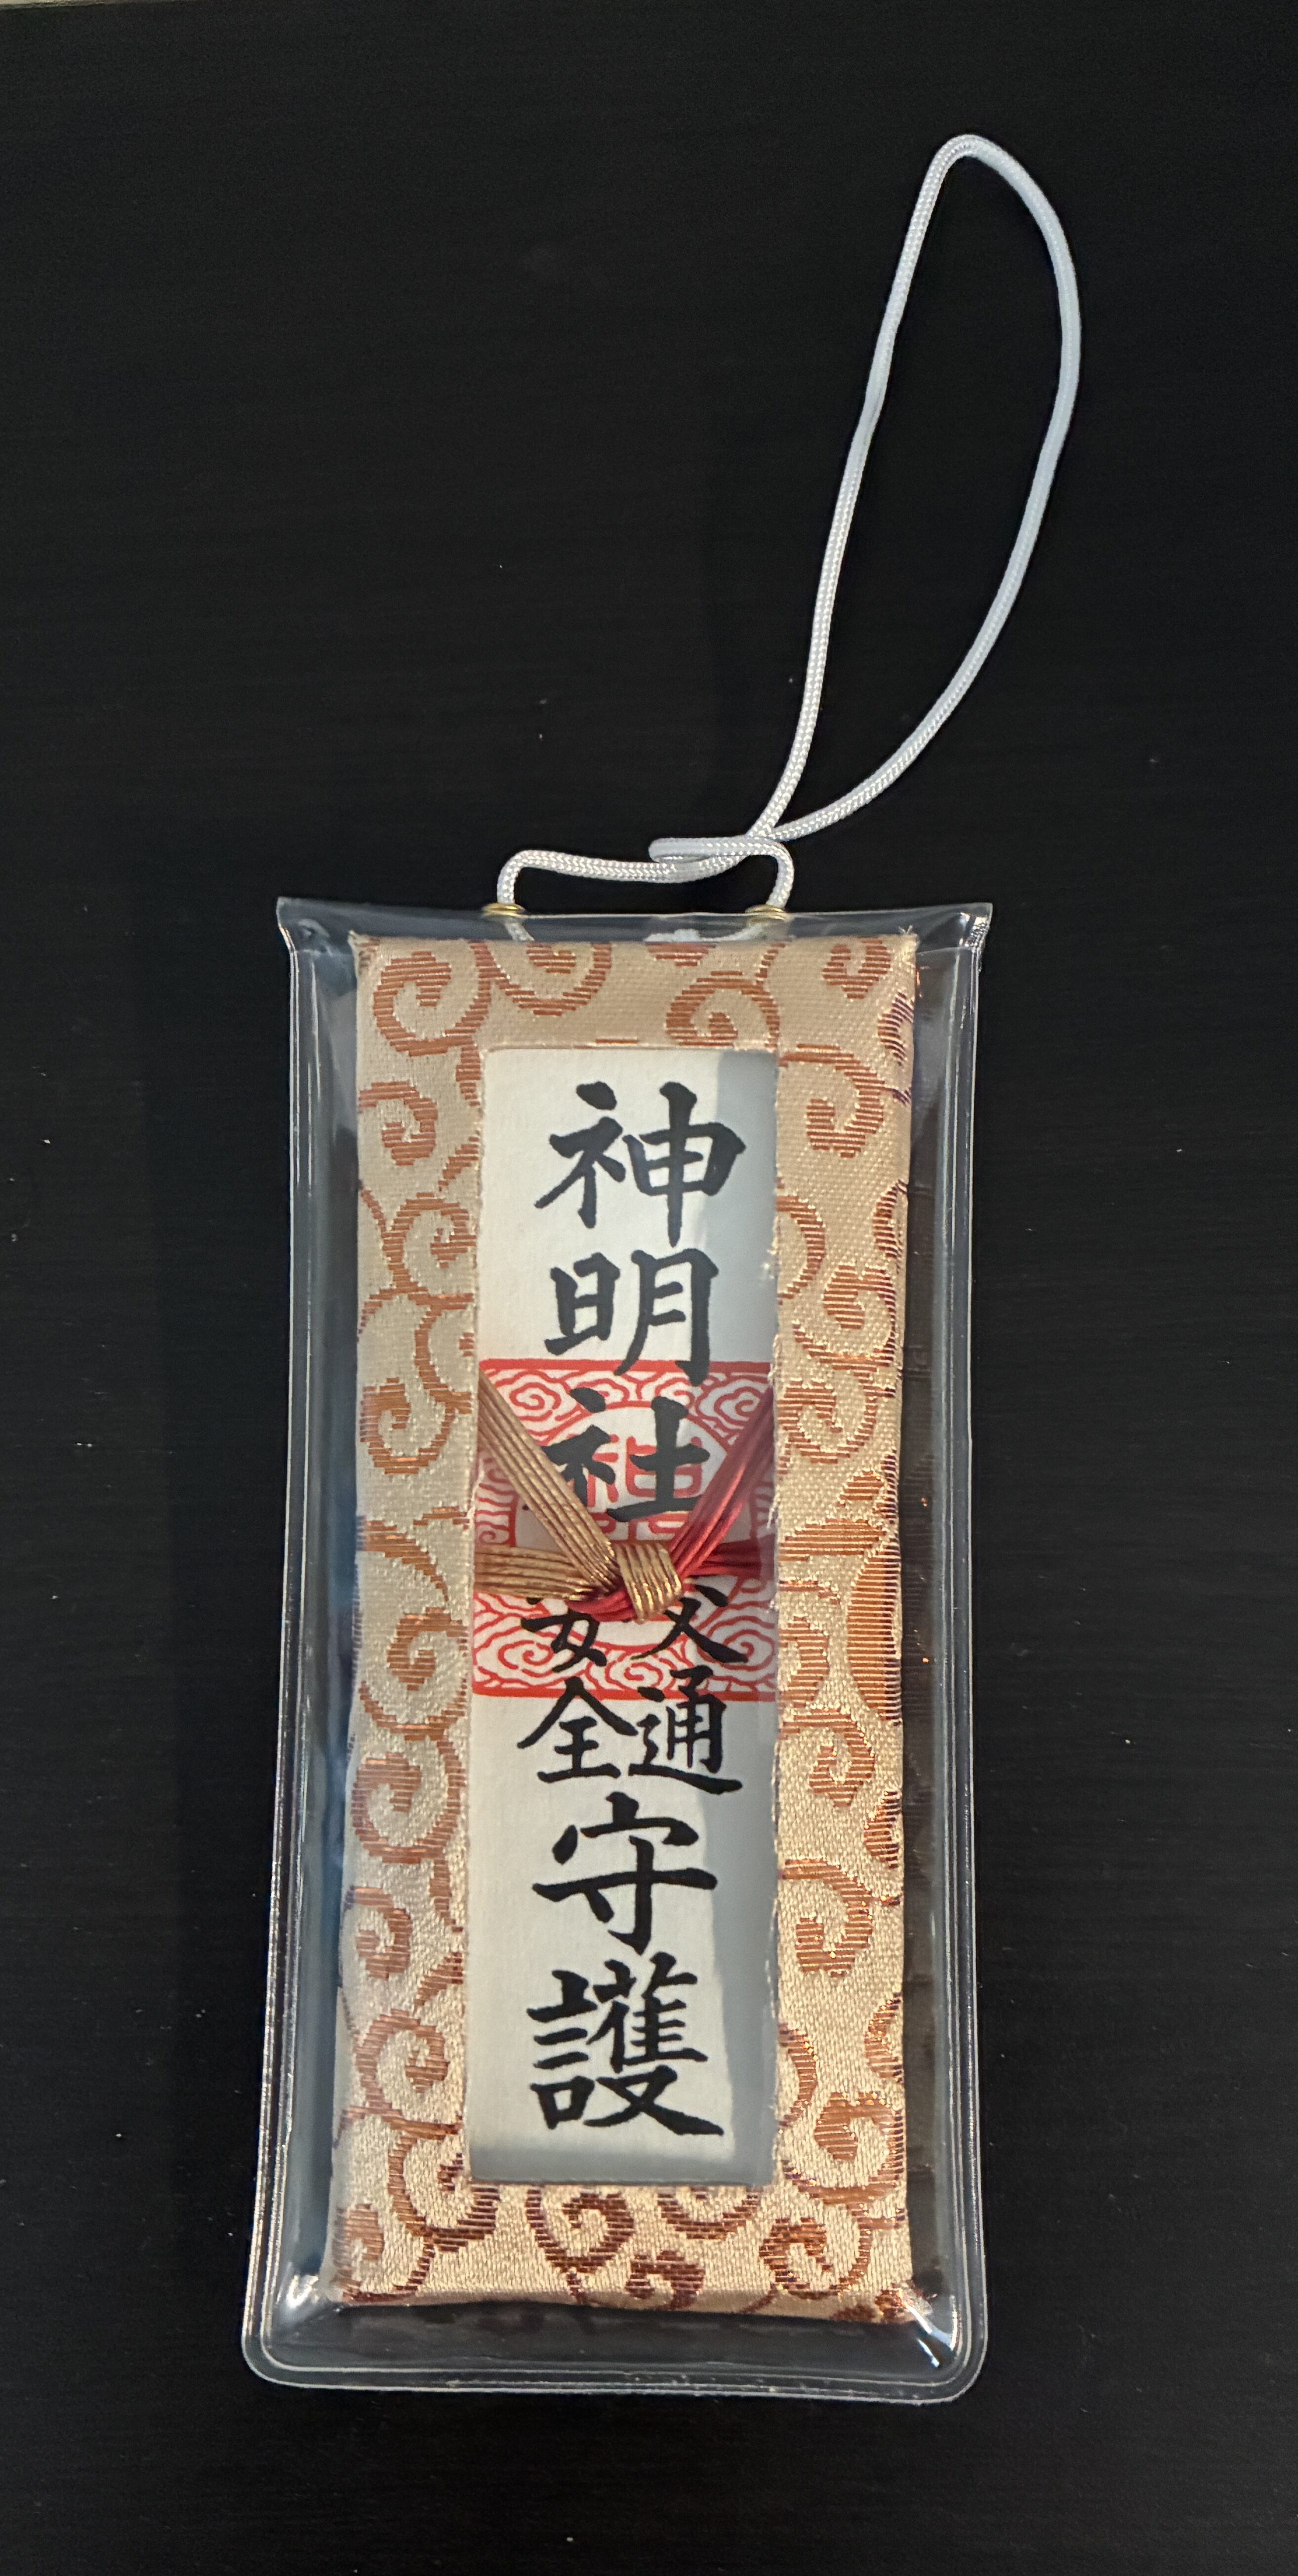 神明社
交通
安全
守護